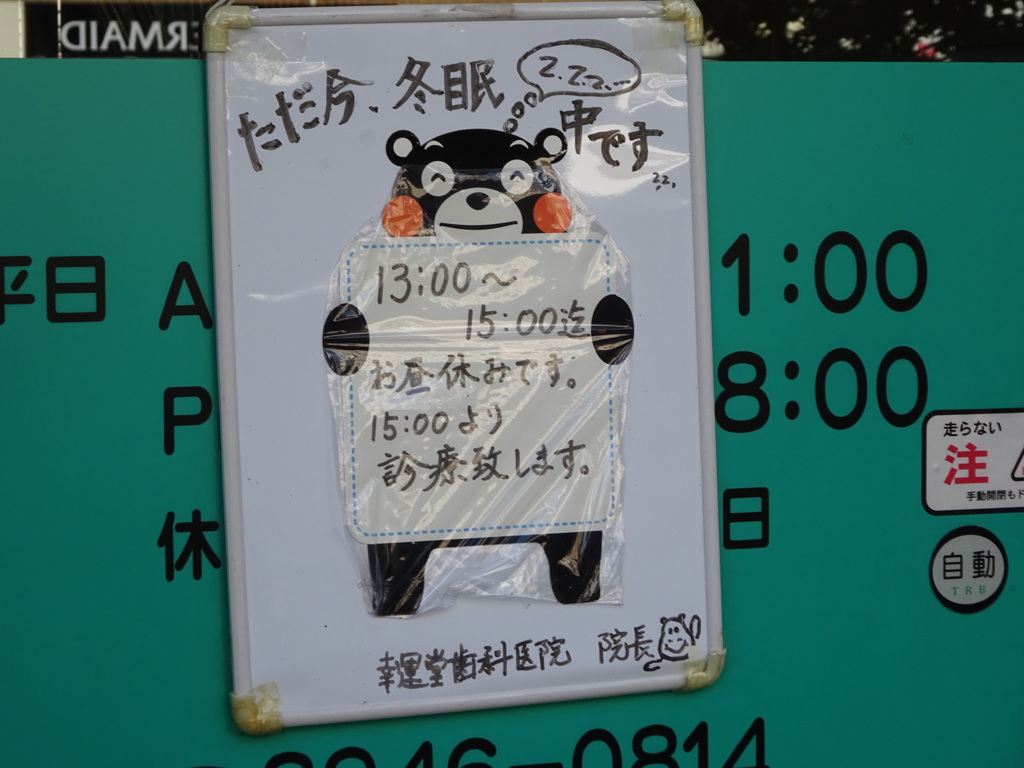 ERMAID
ただ今、冬眠中です
Z.Z.Z...
zz,
13:00～
15:00迄
お昼休みです。
15:00より
診療致します。
幸運堂歯科医院 院長
平日 A 1:00
P 8:00
休 日
走らない
注
手動開閉もド
自動
TRB
946-0814